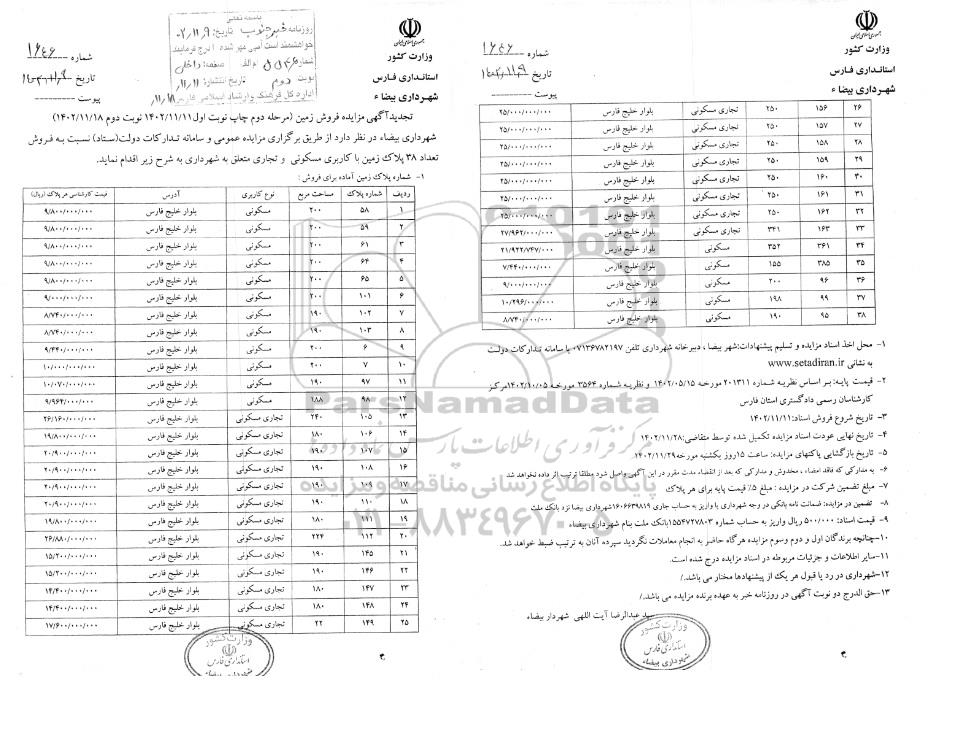 جمهوری اسلامی ایران
وزارت کشور
استانداری فارس
شهرداری بیضاء
شماره ۱۶۴۶
تاریخ ۱۴۰۲/۱۱/۹
پیوست
روزنامه خبر جنوب تاریخ: ۰۲/۱۱/۹
تجدیدآگهی مزایده فروش زمین (مرحله دوم چاپ نوبت اول ۱۴۰۲/۱۱/۱۱ نوبت دوم ۱۴۰۲/۱۱/۱۸)
شهرداری بیضاء در نظر دارد از طریق برگزاری مزایده عمومی و سامانه تدارکات دولت(ستاد) نسبت به فروش
تعداد ۳۸ پلاک زمین با کاربری مسکونی و تجاری متعلق به شهرداری به شرح زیر اقدام نماید.
۱- شماره پلاک زمین آماده برای فروش :
ردیف شماره پلاک مساحت مربع نوع کاربری آدرس قیمت کارشناسی هر پلاک (ریال)
۱ ۵۸ ۲۰۰ مسکونی بلوار خلیج فارس ۹/۸۰۰/۰۰۰/۰۰۰
۲ ۵۹ ۲۰۰ مسکونی بلوار خلیج فارس ۹/۸۰۰/۰۰۰/۰۰۰
۳ ۶۱ ۲۰۰ مسکونی بلوار خلیج فارس ۹/۸۰۰/۰۰۰/۰۰۰
۴ ۶۴ ۲۰۰ مسکونی بلوار خلیج فارس ۹/۸۰۰/۰۰۰/۰۰۰
۵ ۶۵ ۲۰۰ مسکونی بلوار خلیج فارس ۹/۸۰۰/۰۰۰/۰۰۰
۶ ۱۰۱ ۲۰۰ مسکونی بلوار خلیج فارس ۹/۰۰۰/۰۰۰/۰۰۰
۷ ۱۰۲ ۱۹۰ مسکونی بلوار خلیج فارس ۸/۷۴۰/۰۰۰/۰۰۰
۸ ۱۰۳ ۱۹۰ مسکونی بلوار خلیج فارس ۸/۷۴۰/۰۰۰/۰۰۰
۹ ۶ ۲۰۰ مسکونی بلوار خلیج فارس ۹/۴۴۰/۰۰۰/۰۰۰
۱۰ ۷ ۲۰۰ مسکونی بلوار خلیج فارس ۱۰/۰۰۰/۰۰۰/۰۰۰
۱۱ ۹۷ ۱۹۰ مسکونی بلوار خلیج فارس ۱۰/۰۷۰/۰۰۰/۰۰۰
۱۲ ۹۸ ۱۸۸ مسکونی بلوار خلیج فارس ۹/۹۶۴/۰۰۰/۰۰۰
۱۳ ۱۰۵ ۲۴۰ تجاری مسکونی بلوار خلیج فارس ۲۶/۱۶۰/۰۰۰/۰۰۰
۱۴ ۱۰۶ ۱۸۰ تجاری مسکونی بلوار خلیج فارس ۱۹/۸۰۰/۰۰۰/۰۰۰
۱۵ ۱۰۷ ۱۹۰ تجاری مسکونی بلوار خلیج فارس ۲۰/۹۰۰/۰۰۰/۰۰۰
۱۶ ۱۰۸ ۱۹۰ تجاری مسکونی بلوار خلیج فارس ۲۰/۹۰۰/۰۰۰/۰۰۰
۱۷ ۱۰۹ ۱۹۰ تجاری مسکونی بلوار خلیج فارس ۲۰/۹۰۰/۰۰۰/۰۰۰
۱۸ ۱۱۰ ۱۹۰ تجاری مسکونی بلوار خلیج فارس ۲۰/۹۰۰/۰۰۰/۰۰۰
۱۹ ۱۱۱ ۱۸۰ تجاری مسکونی بلوار خلیج فارس ۱۹/۸۰۰/۰۰۰/۰۰۰
۲۰ ۱۱۲ ۲۲۴ تجاری مسکونی بلوار خلیج فارس ۲۶/۸۸۰/۰۰۰/۰۰۰
۲۱ ۱۴۵ ۱۹۰ تجاری مسکونی بلوار خلیج فارس ۱۵/۲۰۰/۰۰۰/۰۰۰
۲۲ ۱۴۶ ۱۹۰ تجاری مسکونی بلوار خلیج فارس ۱۵/۲۰۰/۰۰۰/۰۰۰
۲۳ ۱۴۷ ۱۸۰ تجاری مسکونی بلوار خلیج فارس ۱۴/۴۰۰/۰۰۰/۰۰۰
۲۴ ۱۴۸ ۱۸۰ تجاری مسکونی بلوار خلیج فارس ۱۴/۴۰۰/۰۰۰/۰۰۰
۲۵ ۱۴۹ ۲۲ تجاری مسکونی بلوار خلیج فارس ۱۷/۶۰۰/۰۰۰/۰۰۰
وزارت کشور
استانداری فارس
شهرداری بیضاء
جمهوری اسلامی ایران
وزارت کشور
استانداری فارس
شهرداری بیضاء
شماره ۱۶۴۶
تاریخ ۱۴۰۲/۱۱/۹
پیوست
۲۶ ۱۵۶ ۲۵۰ تجاری مسکونی بلوار خلیج فارس ۲۵/۰۰۰/۰۰۰/۰۰۰
۲۷ ۱۵۷ ۲۵۰ تجاری مسکونی بلوار خلیج فارس ۲۵/۰۰۰/۰۰۰/۰۰۰
۲۸ ۱۵۸ ۲۵۰ تجاری مسکونی بلوار خلیج فارس ۲۵/۰۰۰/۰۰۰/۰۰۰
۲۹ ۱۵۹ ۲۵۰ تجاری مسکونی بلوار خلیج فارس ۲۵/۰۰۰/۰۰۰/۰۰۰
۳۰ ۱۶۰ ۲۵۰ تجاری مسکونی بلوار خلیج فارس ۲۵/۰۰۰/۰۰۰/۰۰۰
۳۱ ۱۶۱ ۲۵۰ تجاری مسکونی بلوار خلیج فارس ۲۵/۰۰۰/۰۰۰/۰۰۰
۳۲ ۱۶۲ ۲۵۰ تجاری مسکونی بلوار خلیج فارس ۲۵/۰۰۰/۰۰۰/۰۰۰
۳۳ ۱۶۳ ۳۴۱ تجاری مسکونی بلوار خلیج فارس ۲۷/۹۶۲/۰۰۰/۰۰۰
۳۴ ۳۶۱ ۳۵۲ مسکونی بلوار خلیج فارس ۲۱/۹۲۲/۷۴۷/۰۰۰
۳۵ ۳۸۵ ۱۵۵ مسکونی بلوار خلیج فارس ۷/۴۴۰/۰۰۰/۰۰۰
۳۶ ۹۶ ۲۰۰ مسکونی بلوار خلیج فارس ۹/۰۰۰/۰۰۰/۰۰۰
۳۷ ۹۹ ۱۹۸ مسکونی بلوار خلیج فارس ۱۰/۲۹۶/۰۰۰/۰۰۰
۳۸ ۹۵ ۱۹۰ مسکونی بلوار خلیج فارس ۸/۷۴۰/۰۰۰/۰۰۰
۱- محل اخذ اسناد مزایده و تسلیم پیشنهادات:شهر بیضا ، دبیرخانه شهرداری تلفن ۰۷۱۳۶۷۸۲۱۹۷ یا سامانه تدارکات دولت
به نشانی www.setadiran.ir
۲- قیمت پایه: بر اساس نظریه شماره ۲۰۱۳۱۱ مورخه ۱۴۰۲/۰۵/۱۵ و نظریه شماره ۳۵۶۴ مورخه ۱۴۰۲/۱۰/۰۵ مرکز
کارشناسان رسمی دادگستری استان فارس
۳- تاریخ شروع فروش اسناد:۱۴۰۲/۱۱/۱۱
۴- تاریخ نهایی عودت اسناد مزایده تکمیل شده توسط متقاضی:۱۴۰۲/۱۱/۲۸
۵- تاریخ بازگشایی پاکتهای مزایده: ساعت ۱۵روز یکشنبه مورخه۱۴۰۲/۱۱/۲۹
۶- به مدارکی که فاقد امضاء ، مخدوش و مدارکی که بعد از انقضاء مدت مقرر در این آگهی واصل شود مطلقا ترتیب اثر داده نخواهد شد
۷- مبلغ تضمین شرکت در مزایده : مبلغ ۵٪ قیمت پایه برای هر پلاک
۸- تضمین در مزایده: ضمانت نامه بانکی در وجه شهرداری یا واریز به حساب جاری ۱۶۰۶۶۳۹۸۱۹شهرداری بیضا نزد بانک ملت
۹- قیمت اسناد: ۵۰۰/۰۰۰ ریال واریز به حساب شماره ۱۵۵۴۷۲۷۸۰۳بانک ملت بنام شهرداری بیضاء
۱۰-چنانچه برندگان اول و دوم وسوم مزایده هرگاه حاضر به انجام معاملات نگردید سپرده آنان به ترتیب ضبط خواهد شد.
۱۱-سایر اطلاعات و جزئیات مربوطه در اسناد مزایده درج شده است.
۱۲-شهرداری در رد یا قبول هر یک از پیشنهادها مختار می باشد./
۱۳-حق الدرج دو نوبت آگهی در روزنامه خبر به عهده برنده مزایده می باشد./
سید عبدالرضا آیت اللهی شهردار بیضاء
وزارت کشور
استانداری فارس
شهرداری بیضاء
ParsNamadData
مرکز فرآوری اطلاعات پارس نماد داده ها
پایگاه اطلاع رسانی مناقصه و مزایده
۰۲۱-۸۸۳۴۹۶۷۰